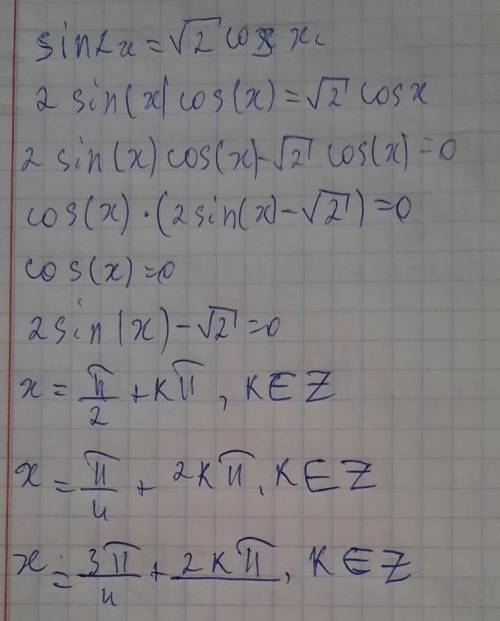 sin2x = √2 cos x.
2 sin(x) cos(x) = √2 cosx
2 sin(x) cos(x) - √2 cos(x) = 0
cos(x) · (2sin(x) - √2) = 0
cos(x) = 0
2sin(x) - √2 = 0
x = π/2 + kπ, k ∈ Z
x = π/4 + 2kπ, k ∈ Z
x = 3π/4 + 2kπ, k ∈ Z